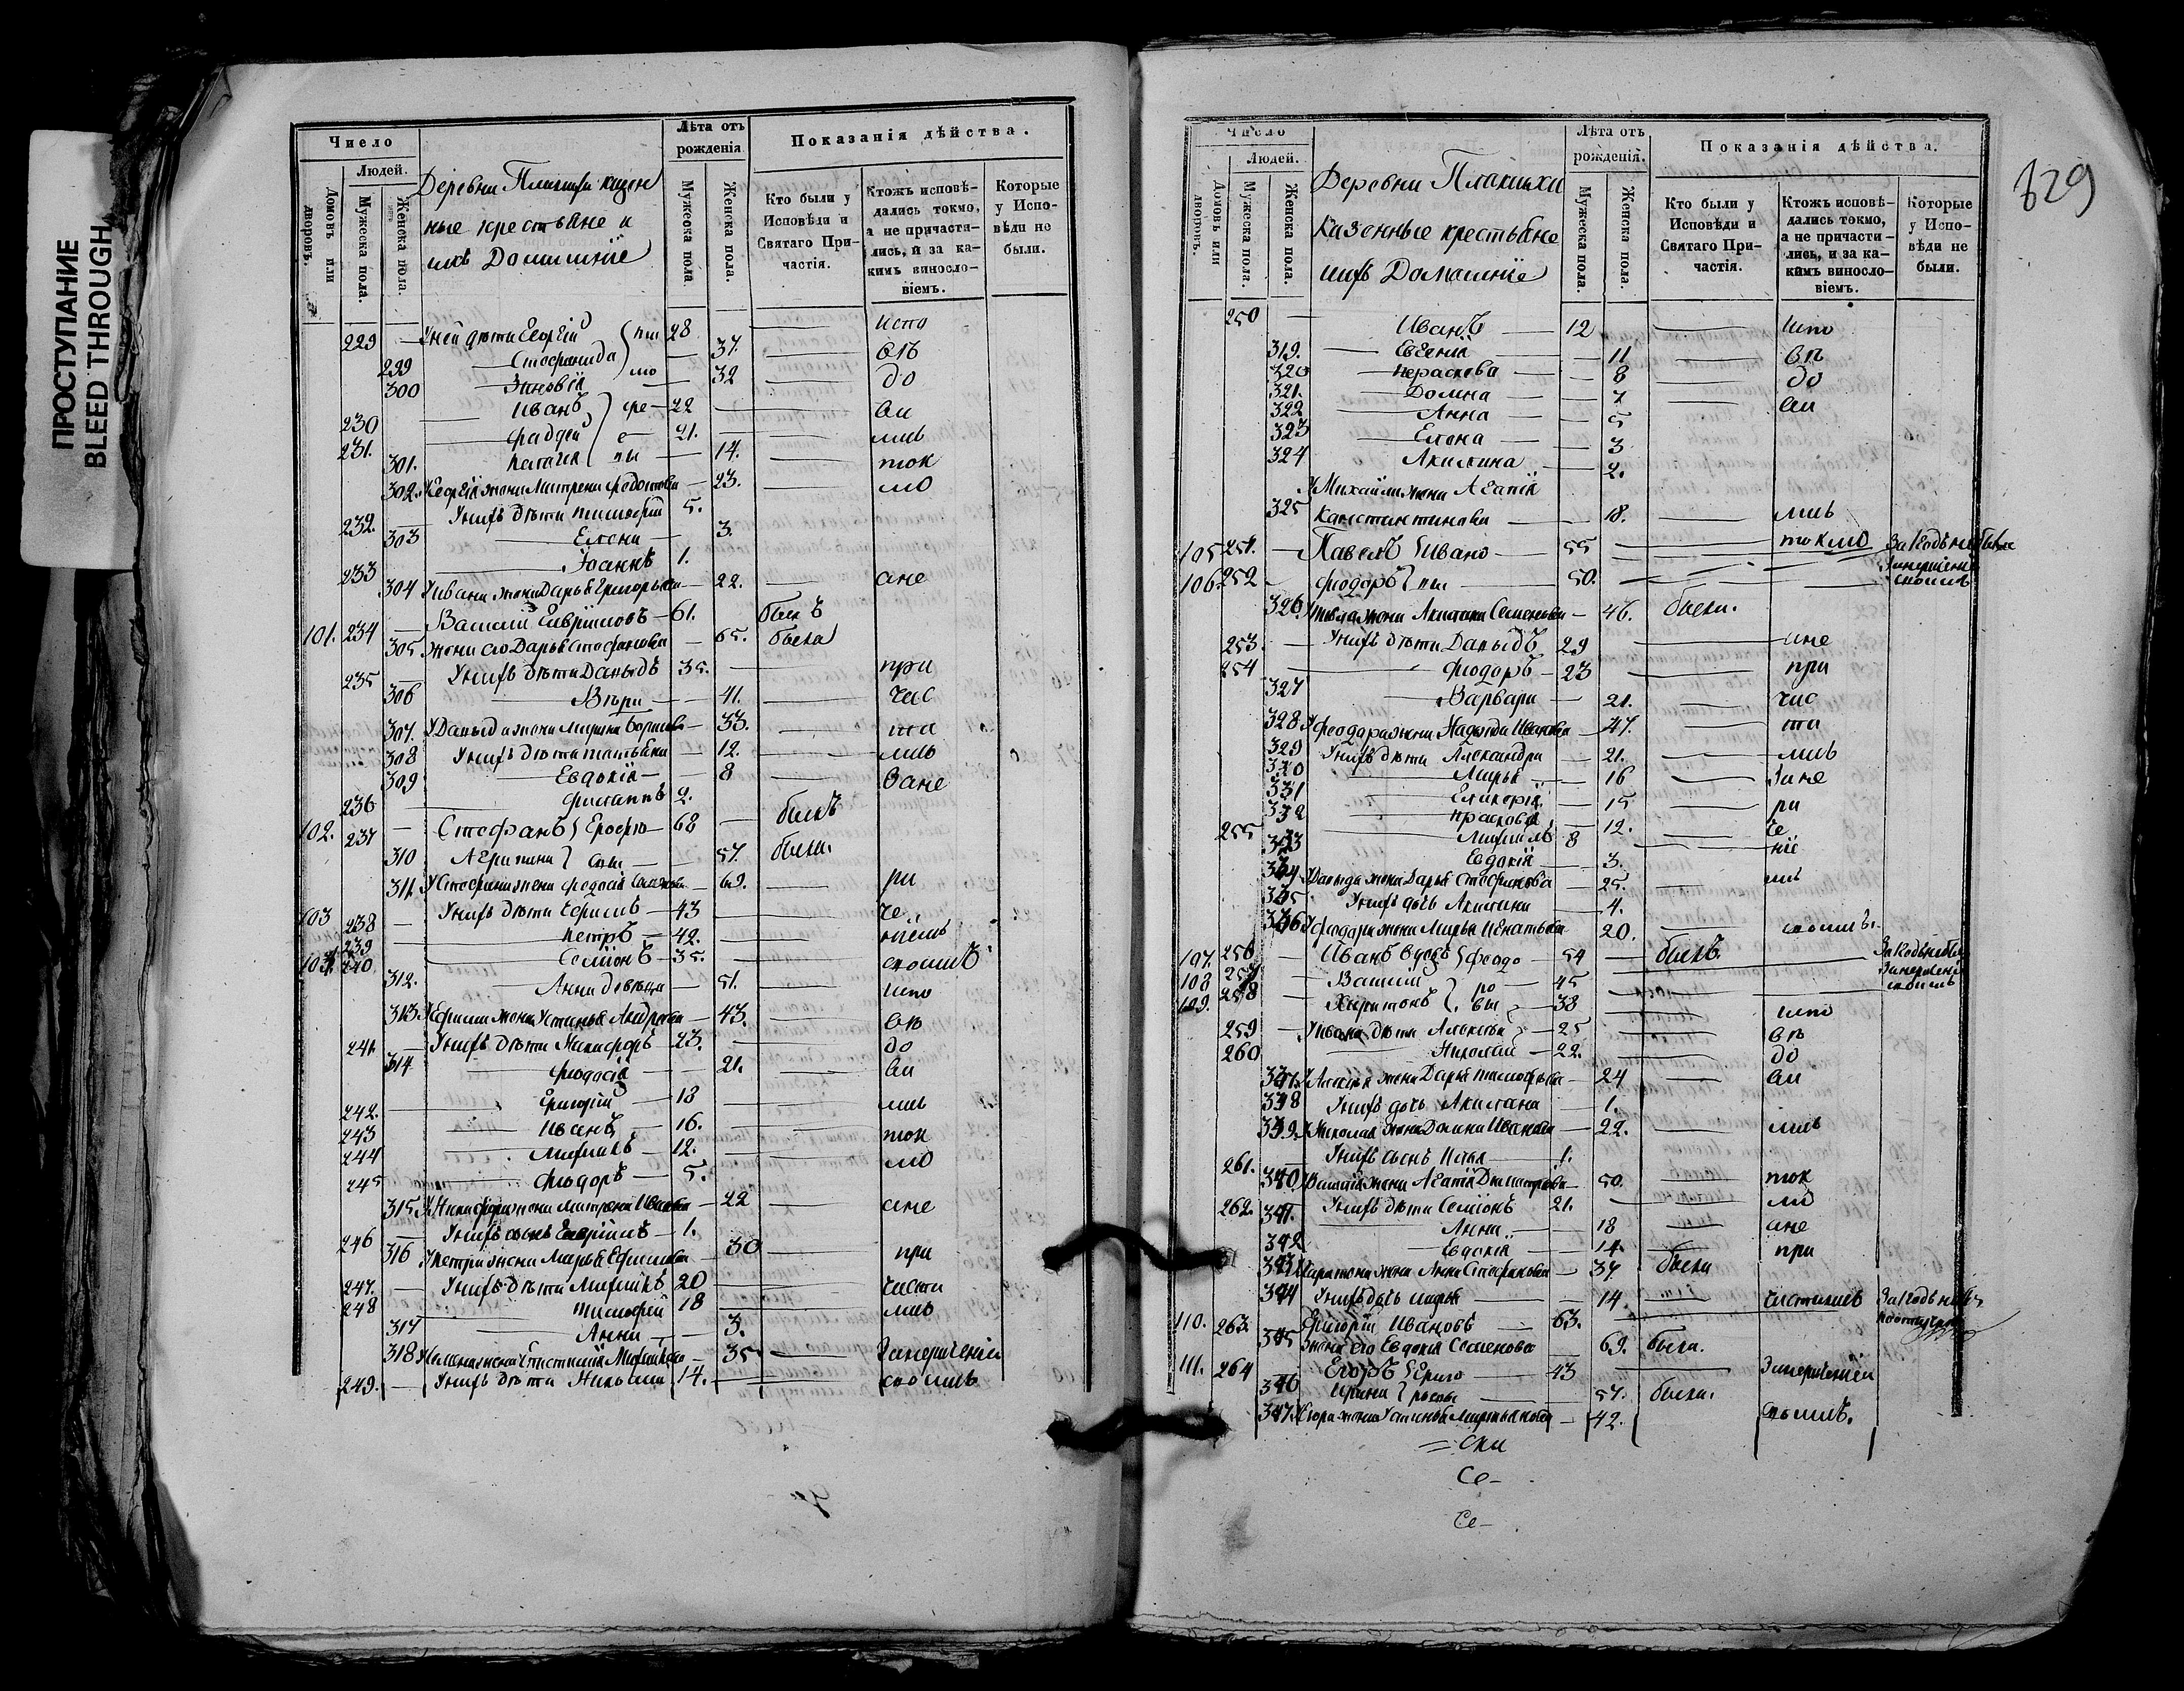 ПРОСТУПАНИЕ
BLEED THROUGH
Число
Людей.
Домовъ или дворовъ.
Мужеска пола.
Женска пола.
Деревни казен
ные крестьяне и
ихъ Домашніе
Лѣта отъ рожденія
Мужеска пола
Женска пола.
Показанія дѣйства.
Кто были у Исповѣди и Святаго Причастія.
Ктожъ исповѣдались токмо, а не причастились, и за какимъ винословіемъ.
Которые у Исповѣди не были.
229 — У ней дѣти Георгій 28 — испо
299 — Стефанида — 37. — вѣ
300 — Зиновія — 32 — до
230 — Иванъ — 22 — ва
231. — Фаддей — 21. — лись
301. Пелагія — 14. — ток
302. У Георгія жена Матрена Федотова — 23. — мо
232. — У нихъ дѣти Тимофей 5.
303 — Елена — 3.
233 — Іоаннъ 1.
304 У Ивана жена Дарья Григорьева — 22. — а не
101. 234 — Василій Гавриловъ — 61. былъ
305. жена его Дарья Стефанова — 65. была
235 — У нихъ дѣти Давыдъ 35. — при
306 — Вѣра — 41. — час
307. У Давыда жена Марина — 33. — ти
308 У нихъ дѣти Татьяна — 12. — лись
309 — Евдокія — 8 — за не
236 — Филиппъ 2.
102. 237 — Стефанъ Ерофѣ — 68 — былъ
310 Агрипина — 57. была.
311. У Стефана жена Федосія Семенова — 69. — ра
103 238 — У нихъ дѣти Ефимъ — 43 — че
239 — Петръ — 42. — ніемъ
104 240 — Семіонъ — 35. — скомъ
312. — Анна дѣвица — 51. — испо
313 У Ефима жена Устинья Андреева — 43. — вѣ
241 — У нихъ дѣти Никифоръ — 23. — до
314 — Феодосія — 21. — ва
242. — Григорій — 18 — лись
243 — Иванъ — 16. — ток
244 — Михаилъ — 12. — мо
245 — Феодоръ — 5.
315 У Никифора жена Матрена Иванова — 22 — а не
246 — У нихъ сынъ Гавріилъ — 1.
316 У Петра жена Марья Ефимова — 30 — при
247. — У нихъ дѣти Михаилъ 20 — части
248 — Тимофей 18 — лись
317 — Анна — 3.
318 У Семіона жена Михайлова — 35 — За нераченіемъ
249. — У нихъ дѣти 14. — скомъ
829
Число
Людей.
Домовъ или дворовъ.
Мужеска пола.
Женска пола.
Деревни Плакихи
Казенные крестьяне
ихъ Домашніе
Лѣта отъ рожденія.
Мужеска пола.
Женска пола.
Показанія дѣйства.
Кто были у Исповѣди и Святаго Причастія.
Ктожъ исповѣдались токмо, а не причастились, и за какимъ винословіемъ.
Которые у Исповѣди не были.
250 — Иванъ — 12 — испо
319. — Евгенія — 11 — вѣ
320 — Параскева — 8 — до
321. — Домна — 7 — ва
322 — Анна — 5
323 — Елена — 3
324 Акилина — 2.
У Михаила жена Агапія
325 Константинова — 18. — лись
105 251. — Павелъ Ивано — 55 — токмо
106. 252 — Феодоръ вы — 50.
326. Павла жена Акилина Семенова — 46. была.
253. — У нихъ дѣти Давыдъ 29 — а не
254 — Феодоръ — 23 — при
327 — Варвара — 21. — час
328. У Феодора жена Надежда Иванова — 47. — ти
329 У нихъ дѣти Александра — 21. — лись
330 — Марья — 16 — за не
331 — Гликерія — 15 — ра
332 — Прасковья — 12. — че
255 — Михаилъ 8 — ніе
333 Евдокія — 3.
334 У Давыда жена Дарья Стефанова — 25. — мъ
335 У нихъ дочь Акилина — 4.
336 У Феодора жена Марья Игнатьева — 20. — скомъ.
107. 256 — Иванъ Феодо — 54 — былъ.
108 257 — Василій ро — 45
109. 258 — Харитонъ вы — 38 — испо
259 — У Ивана дѣти Алексѣй — 25 — вѣ
260 — Николай — 22. — до
337. У Алексѣя жена Дарья Тимофѣева — 24 — ва
338 У нихъ дочь Акилина — 1.
339. У Николая жена Домна Иванова — 22. — лись
261. — У нихъ сынъ Илья — 1.
340 У Василія жена Агапія Дмитріева — 50. — ток
262. У нихъ дѣти Семіонъ 21. — мо
341. — Анна — 18 — а не
342 — Евдокія — 14. — при
343 У Харитона жена Анна Стефанова — 37. была
344 У нихъ дочь Марья — 14. — частились
110. 263. Григорій Ивановъ — 63.
345 Жена его Евдокія Семенова — 69. была.
111. 264 Егоръ Григо — 43 — За нераченіем
346 Ирина рьевы — 57. была.
347 Егора жена Устинья — 42. скомъ.
= ски
Се-
Се-